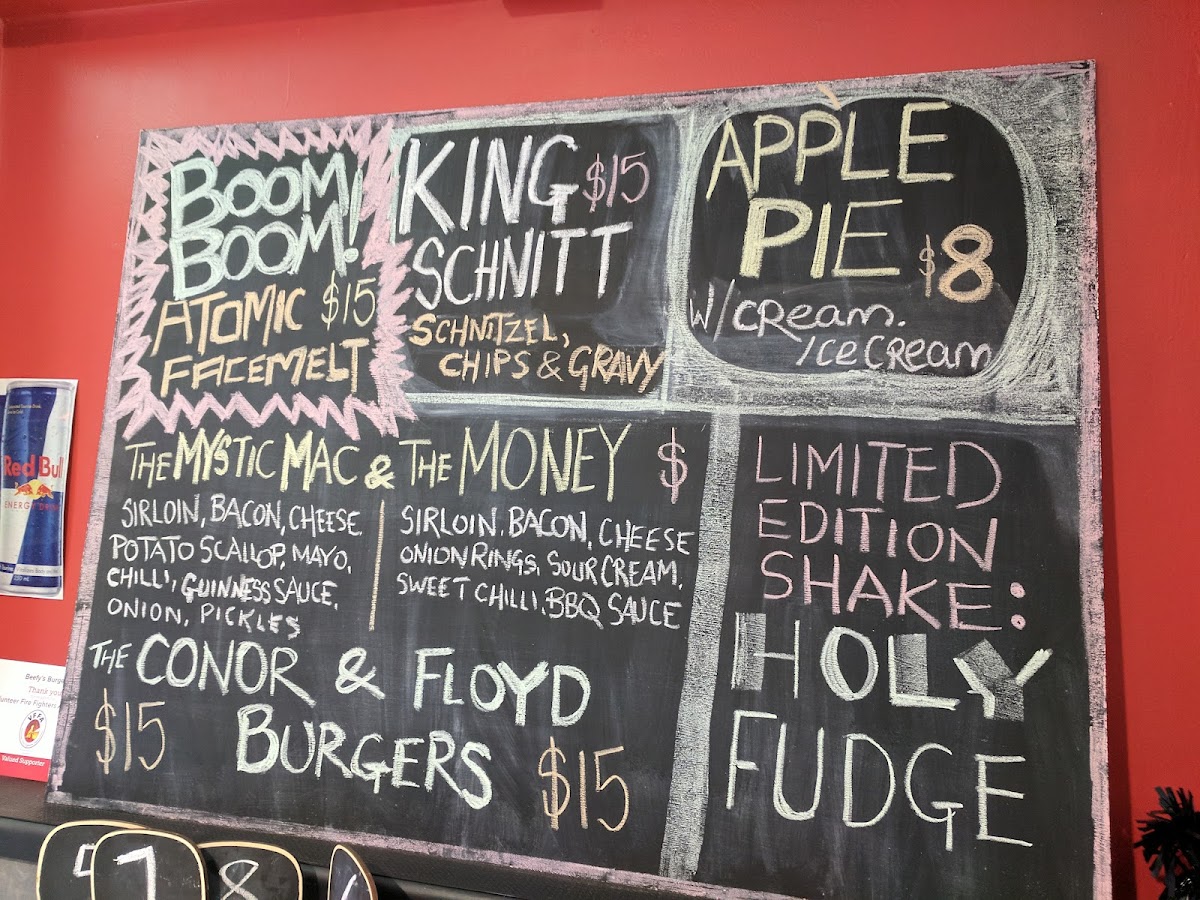 BOOM!
BOOM!
ATOMIC $15
FACEMELT
KING $15
SCHNITT
SCHNITZEL,
CHIPS & GRAVY
APPLE
PIE $8
W/CREAM.
ICE CREAM
THE MYSTIC MAC & THE MONEY $
SIRLOIN, BACON, CHEESE
POTATO SCALLOP, MAYO,
CHILLI, GUINNESS SAUCE,
ONION, PICKLES
SIRLOIN, BACON, CHEESE
ONION RINGS, SOUR CREAM,
SWEET CHILLI, BBQ SAUCE
THE CONOR & FLOYD
$15 BURGERS $15
LIMITED
EDITION
SHAKE:
HOLY
FUDGE
Red Bull
ENERGY
250 ml
Beefy's Burge
Thank you
unteer Fire Fighters
Valued Supporter
7
8